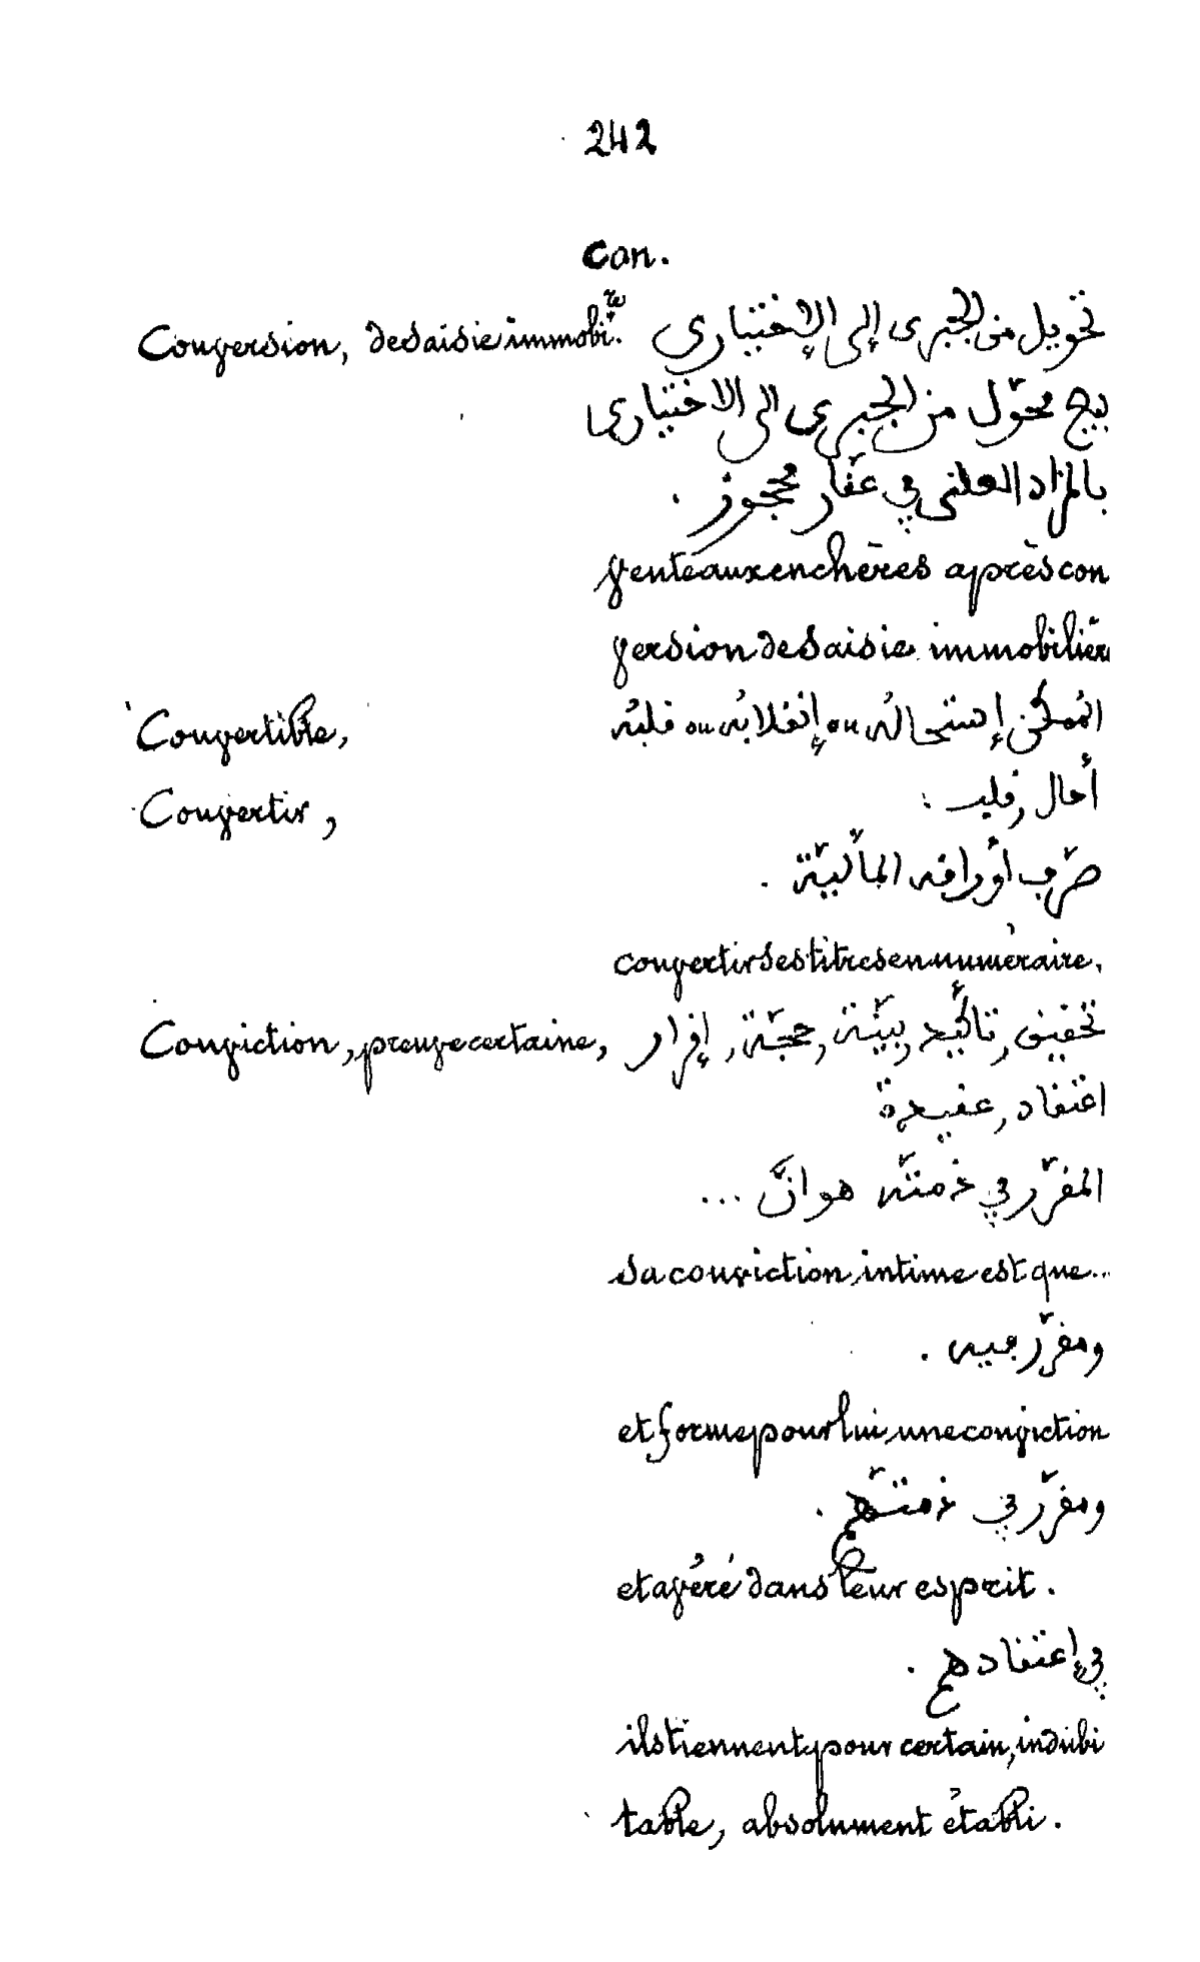 242
Con.
Conversion, de saisie immobi.re تحويل من الجبرى إلى الإختيارى
بيع محوّل من الجبرى الى الاختيارى
بالمزاد العلنى في عقار محجوز .
vente aux enchères après con
version de saisie immobilière
Convertible, الممكن إستحالته ou إنقلابه ou قلبه
Convertir, أحال , قلب :
صرّف أوراقه الماليّة .
convertir ses titres en numéraire.
Conviction, preuve certaine, تحقيق , تأكيد , بيّنة , حجّة , إقرار
اعتقاد , عقيدة
المقرّر في ذمّته هو انّ ...
sa conviction intime est que...
ومقرّر فيه .
et forme pour lui une conviction
ومقرّر في ذمّتهم .
et avéré dans leur esprit.
في إعتقادهم .
ils tiennent pour certain, indubi
table, absolument établi.